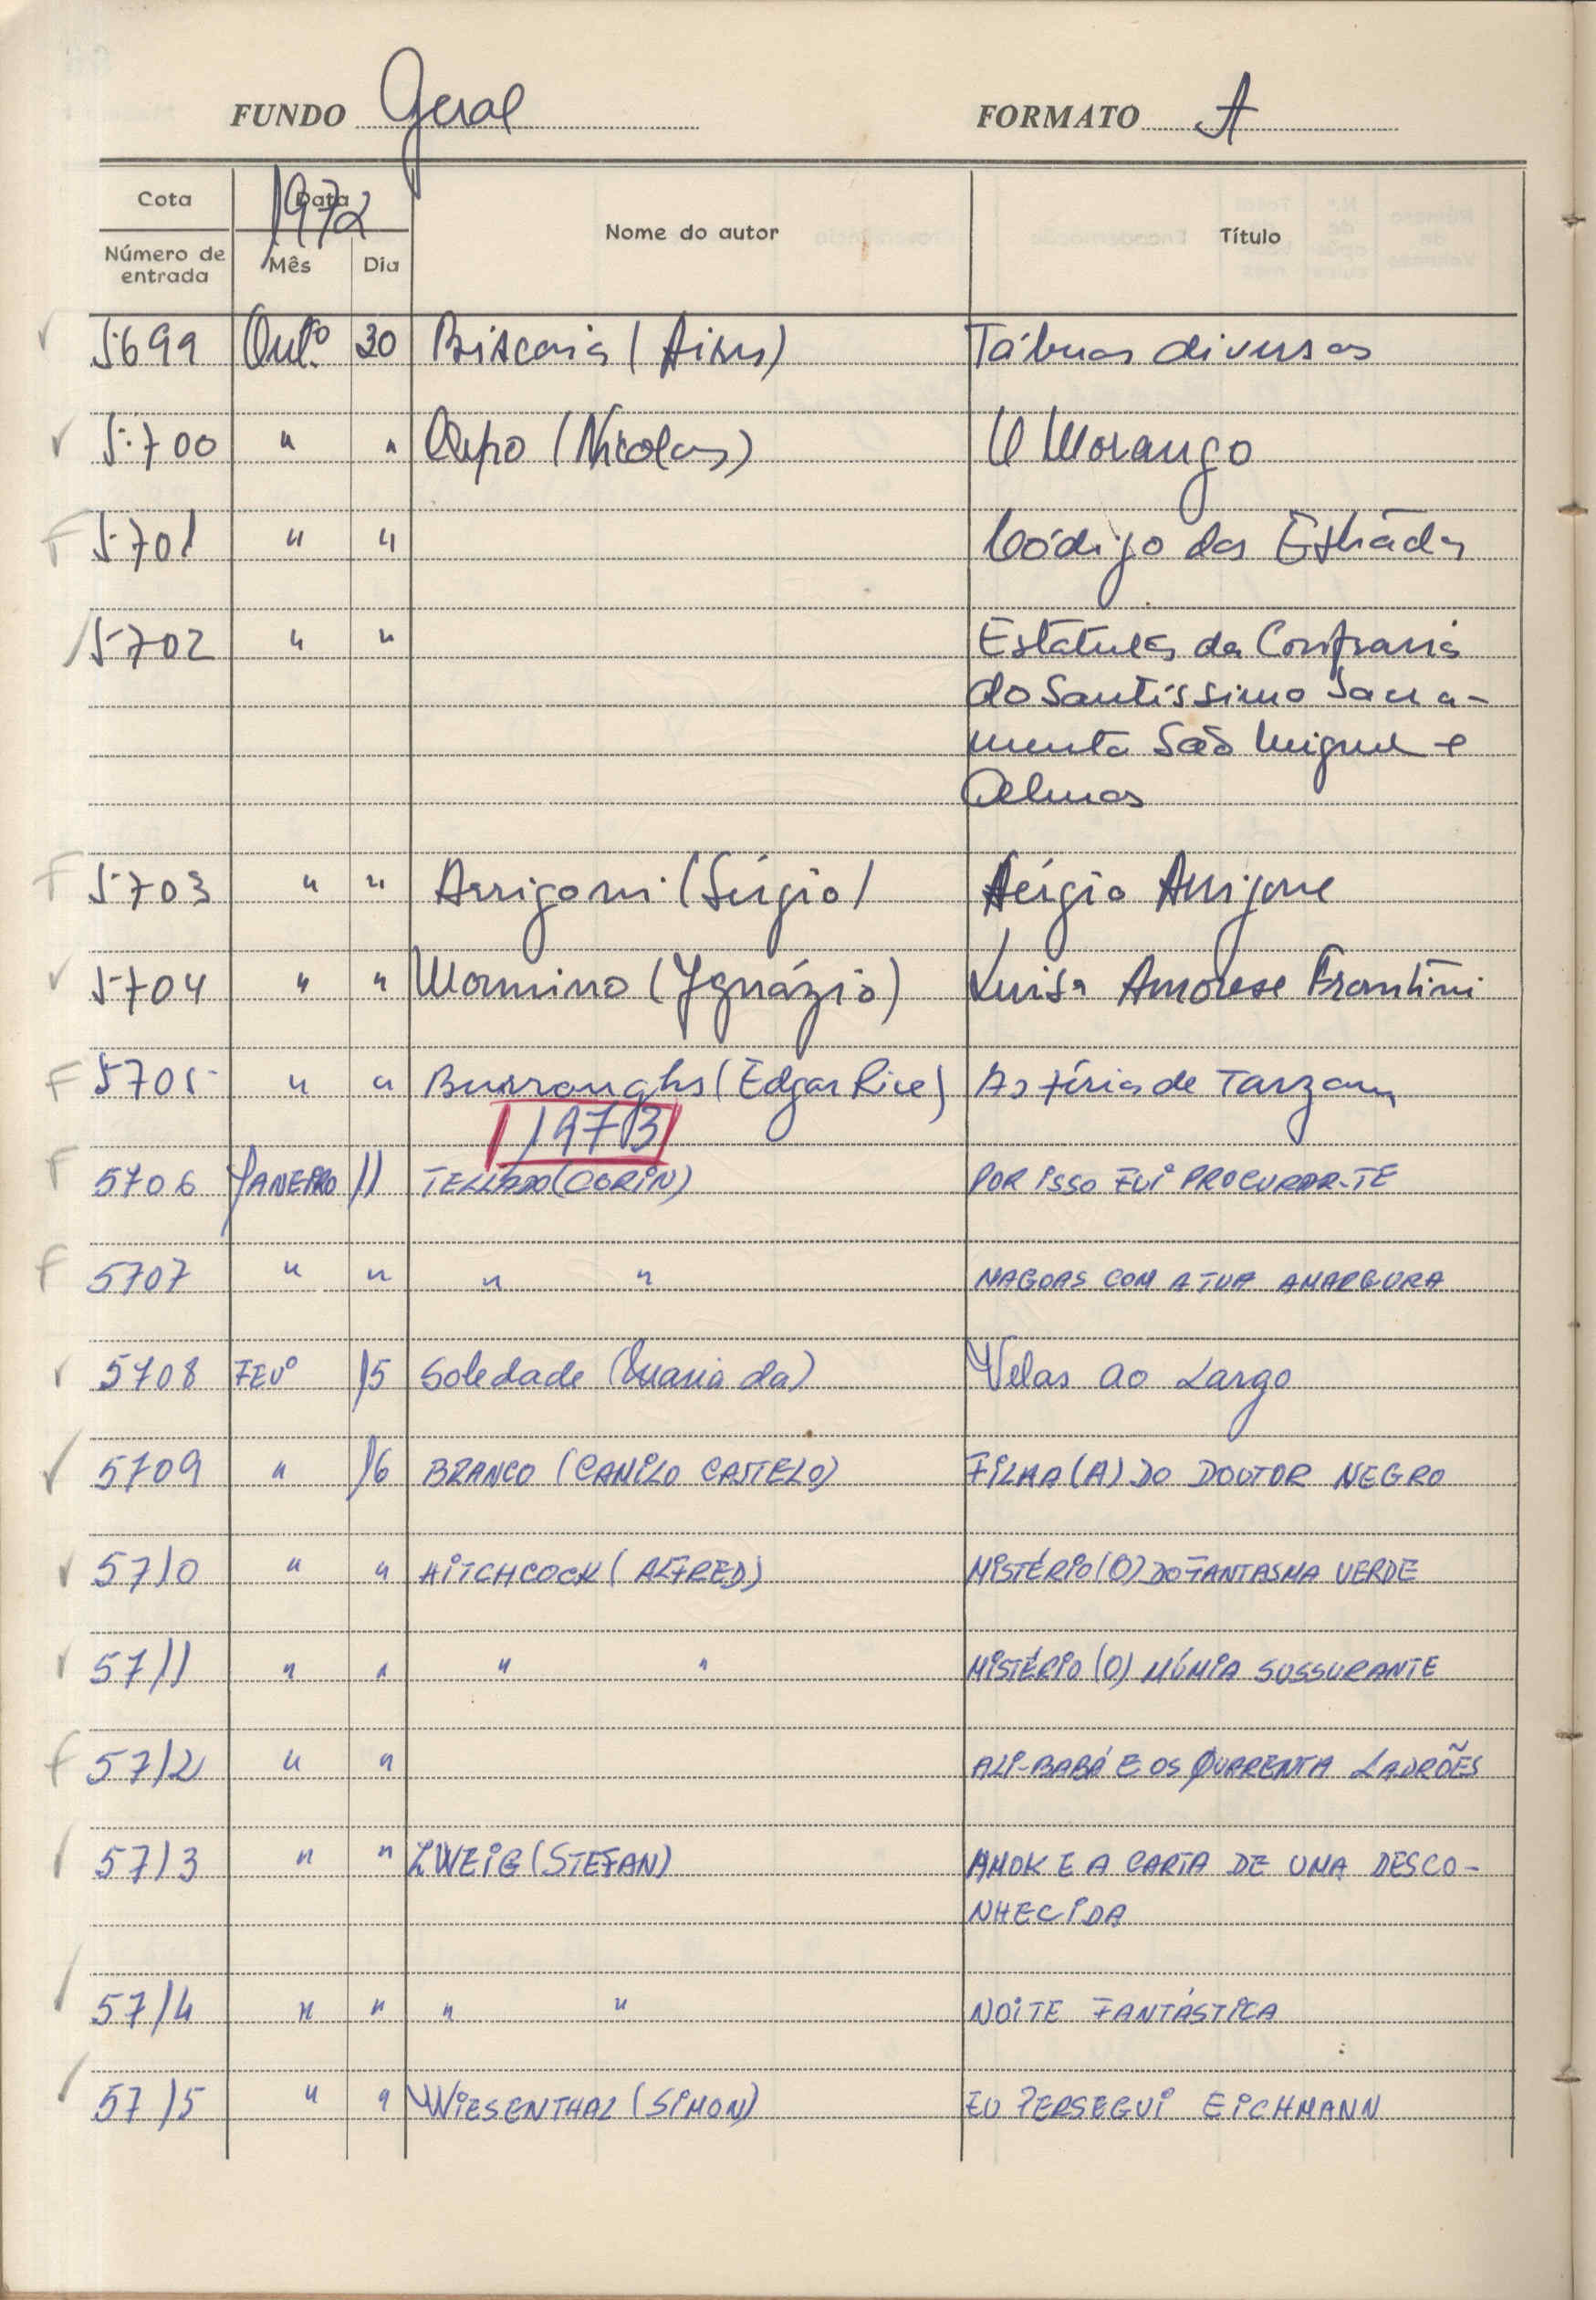 FUNDO Geral FORMATO A
Cota Data 1972 Nome do autor Título
Número de entrada Mês Dia
✓ 5699 Outº. 30 Biscaia (Aires) Tábuas diversas
✓ 5700 " " (Nicolas) O Morango
F 5701 " " Código da Estrada
/ 5702 " " Estatutos da Confraria
do Santissimo Sacra-
mento São Miguel e
Almas
F 5703 " " Arrigoni (Sérgio) Sérgio Arrigone
✓ 5704 " " Mormino (Ygnázio) Luisa Amorese Frontini
F 5705 " " Burroughs (Edgar Rice) As férias de Tarzam
1973
F 5706 JANEIRO 11 TELLADO (CORIN) POR ISSO FUI PROCURAR-TE
F 5707 " " " " MAGOAS COM A TUA AMARGURA
✓ 5708 FEVº 15 Soledade (Maria da) Velas ao Largo
✓ 5709 " 16 BRANCO (CAMILO CASTELO) FILHA (A) DO DOUTOR NEGRO
✓ 5710 " " HITCHCOCK (ALFRED) MISTÉRIO (O) DO FANTASMA VERDE
✓ 5711 " " " " MISTÉRIO (O) MÚMIA SUSSURANTE
F 5712 " " ALI-BABÁ E OS QUARENTA LADRÕES
/ 5713 " " ZWEIG (STEFAN) AMOK E A CARTA DE UMA DESCO-
NHECIDA
/ 5714 " " " " NOITE FANTÁSTICA
✓ 5715 " " WIESENTHAL (SIMON) EU PERSEGUI EICHMANN